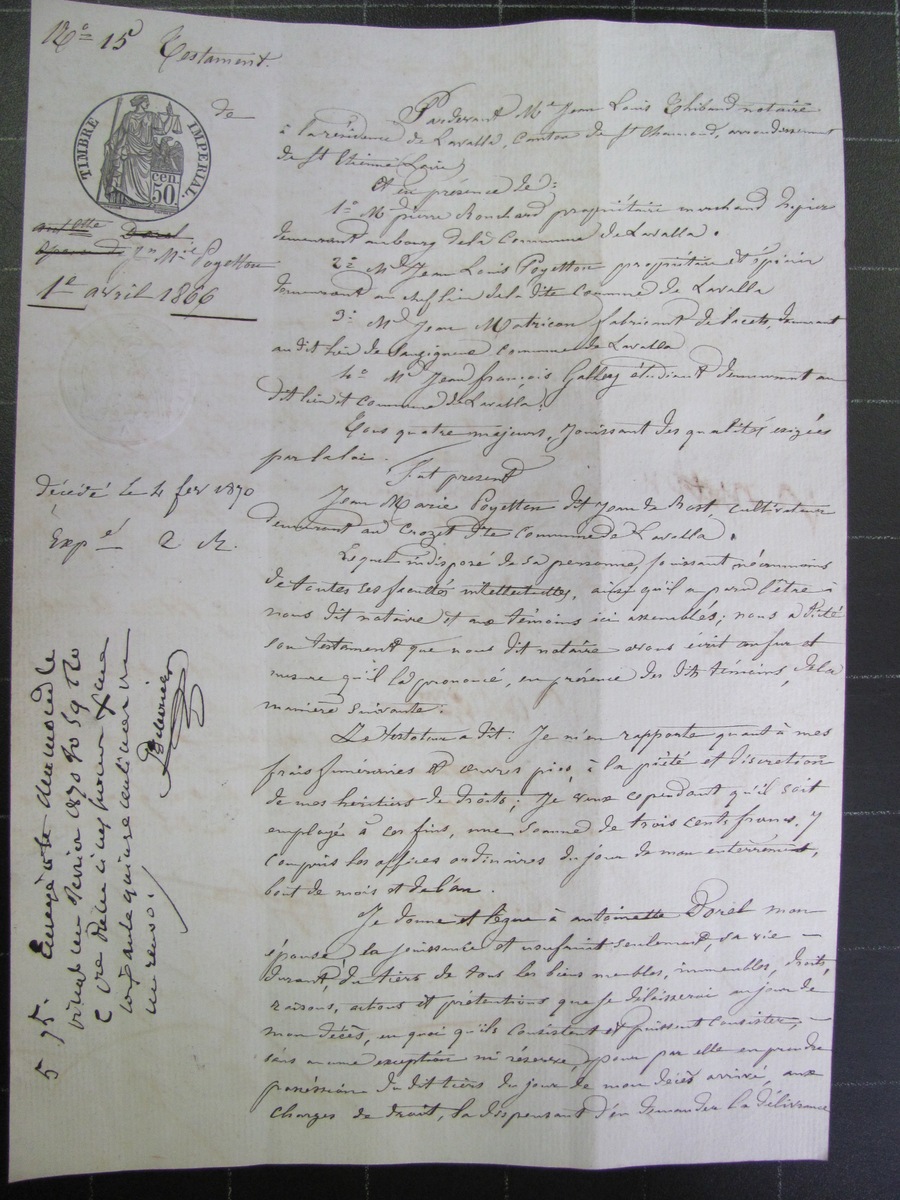 No 15 Testament
TIMBRE IMPERIAL
cen. 50
de
antette Dorel
épouse de Jn Mie Poyetton
1e avril 1866
décédé le 4 fev 1870
Expé 2 R.
5 75. Enregistré
février 1870 fo 59
cinq francs
soixante quinze centimes
Pardevant Me Jean Louis Thibaud notaire
à la résidence de Lavalla, Canton de St Chamond, arrondissement
de St Etienne Loire,
Et en présence de:
1o Mr pierre Bouchard propriétaire marchand
demeurant au bourg de la Commune de Lavalla.
2o Mr Jean Louis Poyetton propriétaire et épicier
demeurant au chef lieu de la dite Commune de Lavalla
3o Mr Jean Matricon fabricant de lacets, demeurant
au dit lieu de Commune de Lavalla
4o Mr Jean françois Galley étudiant demeurant au
dit lieu et Commune de Lavalla.
Tous quatre majeurs, Jouissant des qualités exigées
par la loi.
Fut présent
Jean Marie Poyetton dit Jean de Bost cultivateur
demeurant au Crozet dite Commune de Lavalla.
Lequel indisposé de sa personne, Jouissant néanmoins
de toutes ses facultés intellectuelles, ainsi qu'il a paru l'être à
nous dit notaire et aux témoins ici assemblés; nous a dicté
son testament que nous dit notaire avons écrit au fur et
mesure qu'il l'a prononcé, en présence des dits témoins, de la
manière suivante:
Le testateur a dit: Je m'en rapporte quant à mes
frais funéraires et œuvres pies, à la piété et discrétion
de mes héritiers de droits; Je veux cependant qu'il soit
employé à ces fins, une somme de trois cents francs, y
compris les offices ordinaires du jour de mon enterrement,
bout de mois et de l'an.
Je donne et lègue à antoinette Dorel mon
épouse, la jouissance et usufruit seulement, sa vie
durant, du tiers de tous les biens meubles, immeubles, droits,
raisons, actions et prétentions que je délaisserai au jour de
mon décès, en quoi qu'ils consistent et puissent consister,
sans aucune exception ni réserve, pour par elle en prendre
possession du dit tiers du jour de mon décès arrivé, aux
charges de droit, la dispensant d'en demander la délivrance